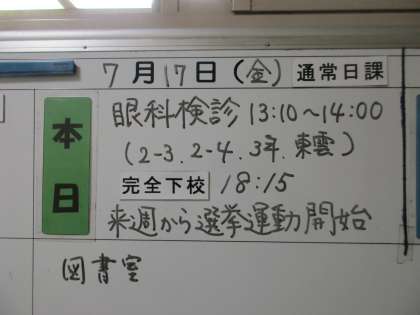 7月17日(金) 通常日課
本日
眼科検診 13:10〜14:00
(2-3. 2-4. 3年. 東雲)
完全下校 18:15
来週から選挙運動開始
図書室